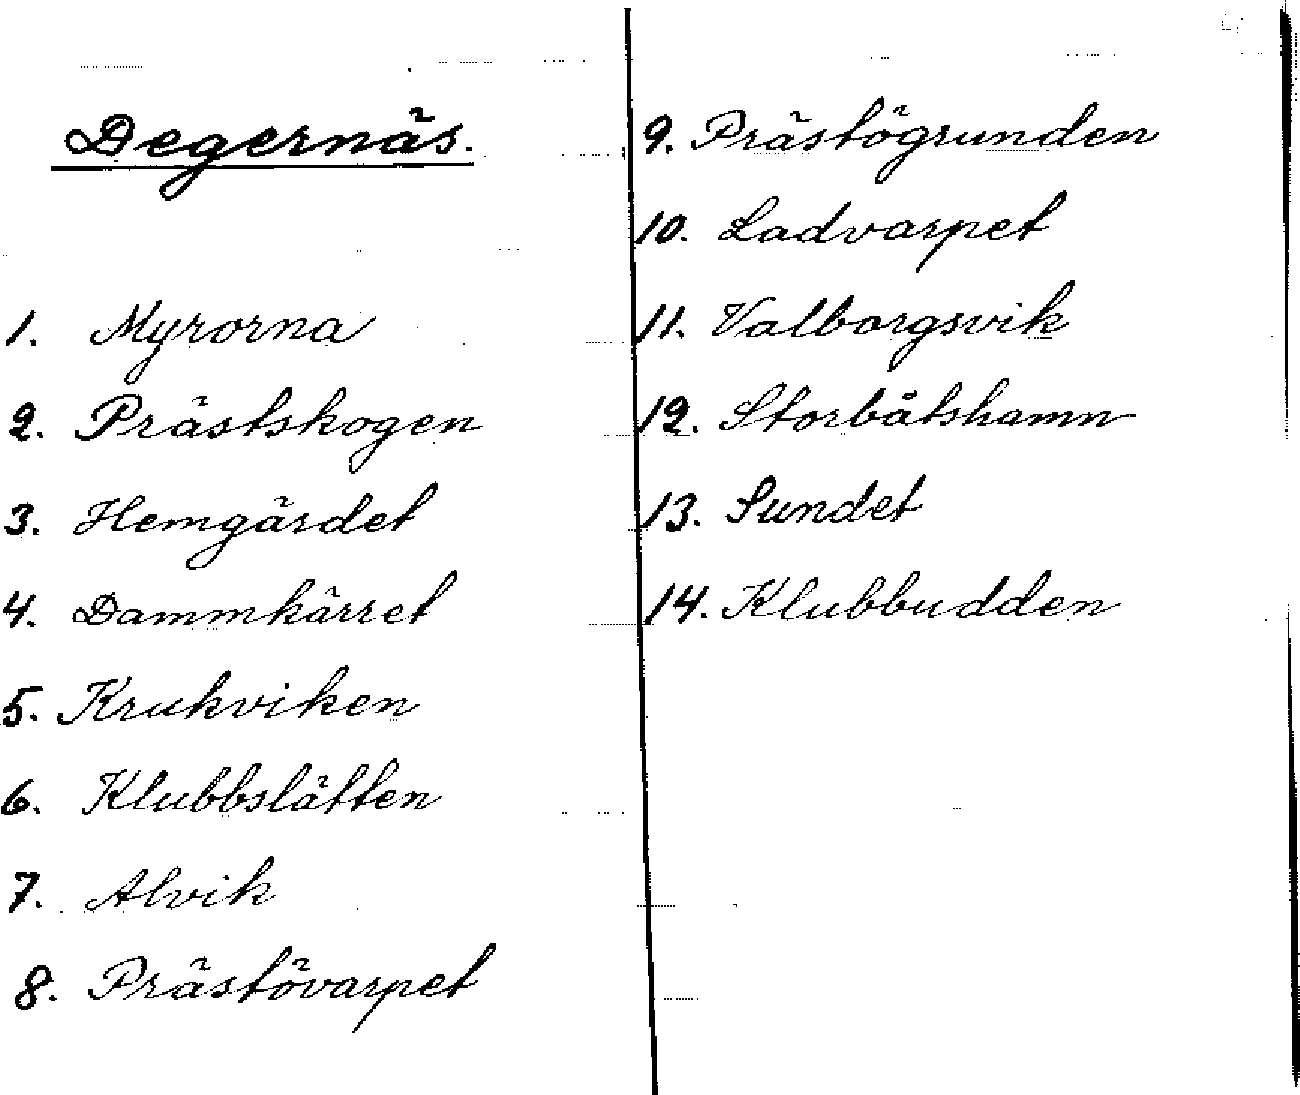 Degernäs.
1. Myrorna
2. Prästskogen
3. Hemgärdet
4. Dammkärret
5. Krukviken
6. Klubbslätten
7. Alvik
8. Prästövarpet
9. Prästögrunden
10. Ladvarpet
11. Valborgsvik
12. Storbåtshamn
13. Sundet
14. Klubbudden